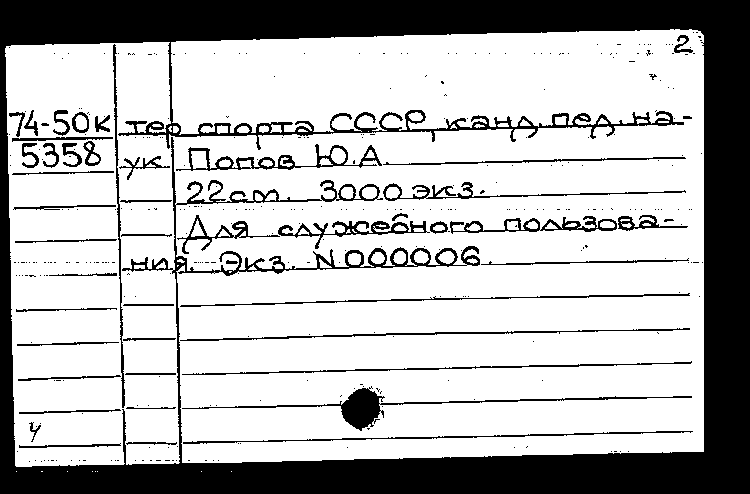 2
74-50к тер спорта СССР, канд. пед. на-
5358 ук Попов Ю.А.
22 см. 3000 экз.
Для служебного пользова-
ния. Экз. N000006.